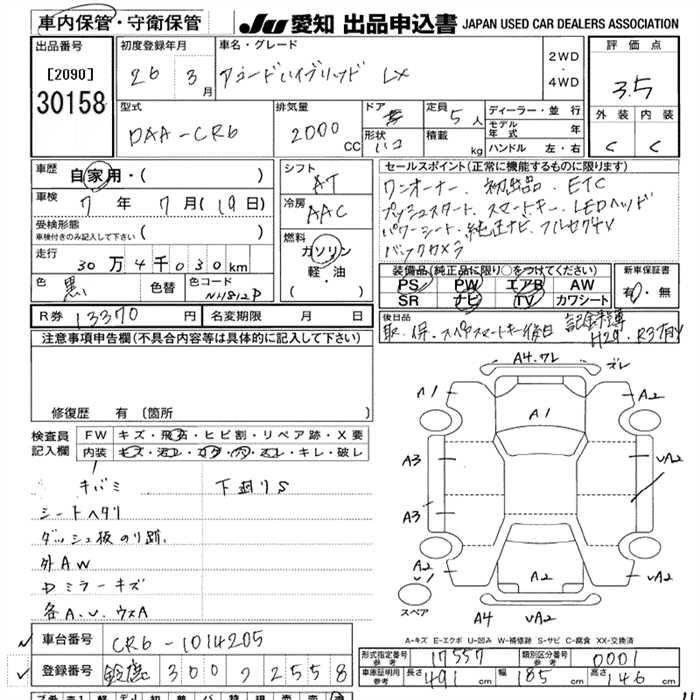 車内保管・守衛保管
JU 愛知 出品申込書 JAPAN USED CAR DEALERS ASSOCIATION
出品番号
[2090]
30158
初度登録年月
26 3月
車名・グレード
アコードハイブリッド LX
2WD・4WD
評価点
3.5
外装 内装
C C
型式
DAA-CR6
排気量
2000cc
ドア
形状 ハコ
定員 5人
積載 kg
ディーラー・並行
モデル年式 年
ハンドル 左・右
車歴
自家用・( )
車検
7年7月(19日)
受検形態
車検付きのみ記入して下さい ( )
走行
30万4千030km
色 黒 色替 色コード NH812P
シフト
AT
冷房
AAC
燃料
ガソリン
軽・油
( )
セールスポイント(正常に機能するものに限ります)
ワンオーナー、初出品、ETC
プッシュスタート、スマートキー、LEDヘッド
パワーシート、純正ナビ、フルセグTV
バックカメラ
装備品(純正品に限り○をつけてください)
PS PW エアB AW
SR ナビ TV カワシート
新車保証書
有・無
R券 13370円 名変期限 月 日
後日品
取、保、スペアスマートキー後日 記録簿
H29、R3
注意事項申告欄(不具合内容等は具体的に記入して下さい)
修復歴 有(箇所 )
検査員記入欄
FW キズ・飛石・ヒビ割・リペア跡・X要
内装 キズ・汚レ・コゲ・穴・スレ・キレ・破レ
キバミ 下廻りS
シートヘタリ
ダッシュ板のり跡
外AW
Dミラーキズ
各A、U、ウスA
A4、ワレ ズレ
A1 A1 A2
A3 UA2
A3
A2 A2 UA2
スペア
A4 UA2
A-キズ E-エクボ U-凹み W-補修跡 S-サビ C-腐食 XX-交換済
車台番号 CR6-1014205
登録番号 鈴鹿 300 2558
型式指定番号 参考 17557 類別区分番号 参考 0001
車庫証明用 参考 長さ 491cm 幅 185cm 高さ 146cm